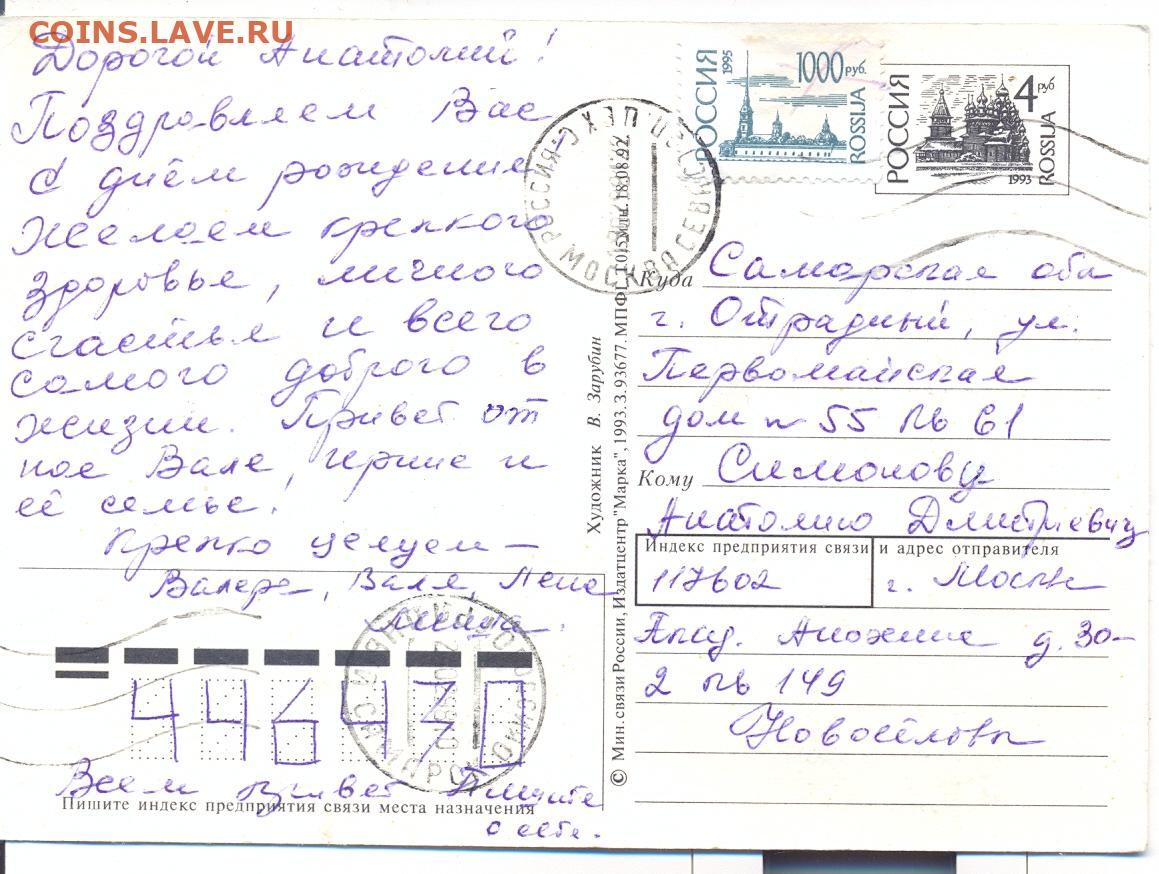 COINS.LAVE.RU
Дорогой Анатолий!
Поздравляем Вас
с днём рождения.
Желаем крепкого
здоровья, личного
счастья и всего
самого доброго в
жизни. Привет от
нас Вале, Ирине и
её семье.
Крепко целуем –
Валера, Валя, Лена
Миша.
446430
Всем привет Пишите
о себе.
Пишите индекс предприятия связи места назначения
РОССИЯ 1995
1000 руб.
ROSSIJA
РОССИЯ
4 руб
1993
ROSSIJA
РОССИЯ
МОСКВА
Художник В. Зарубин
© Мин.связи России, Издатцентр "Марка", 1993. З. 93677. МПФГ. 18.08.92.
Куда Самарская обл
г. Отрадный, ул.
Первомайская
дом № 55 кв 61
Кому Симонову
Анатолию Дмитриевичу
Индекс предприятия связи и адрес отправителя
117602 г. Москва
Акад. Анохина д. 30–
2 кв 149
Новосёловы